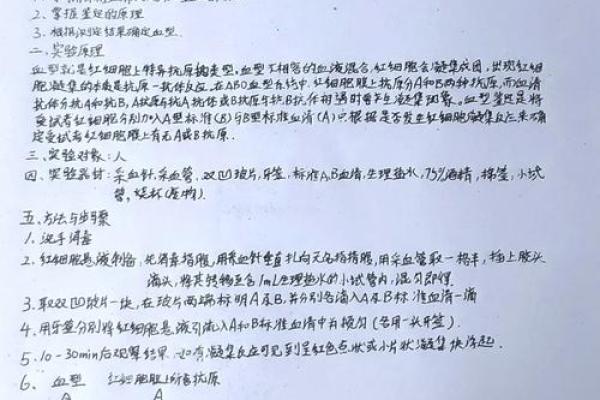 2、掌握鉴定的原理
3、根据测定结果确定血型.
二、实验原理
血型就是红细胞上特异抗原的类型。血型不相容的血液混合,红细胞会凝集成团,出现红细
胞凝集的本质是抗原-抗体反应。在ABO血型系统中,红细胞膜上抗原分A和B两种抗原,而血清
抗体分抗A和抗B。A抗原与抗A抗体或B抗原与抗B抗体相遇时会产生凝集现象。血型鉴定是将
受试者红细胞分别加入A型标准(B)与B型标准血清(A)只根据是否发生红细胞凝集反应来确
定受试者红细胞膜上有无A或B抗原.
三、实验对象:人
四、实验器材:采血针,采血管,双凹玻片,牙签,标准A,B血清,生理盐水,75%酒精,棉签,小试
管,烧杯(废物).
五、方法与步骤
1、洗手消毒
2、红细胞悬液制备,先消毒指腹,用采血针垂直扎向无名指指腹,用采血管取一格半,插上胶头
滴头,将其转移至含1mL生理盐水的小试管内,混匀即得.
3、取双凹玻片一块,在玻片两端标明A及B,并分别各滴入A及B标准血清一滴
4、用牙签分别将红细胞悬液引流入A和B标准血清中并搅匀(各用一头牙签).
5、10-30min后观察结果.如有凝集反应可见到呈红色点状或小片状凝集块浮起.
6、血型 红细胞膜上所含抗原
A A